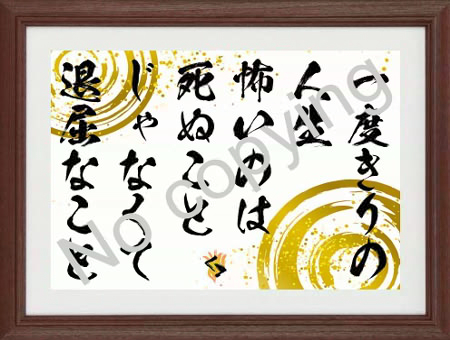 一度きりの
人生
怖いのは
死ぬこと
じゃなくて
退屈なこと
No copying